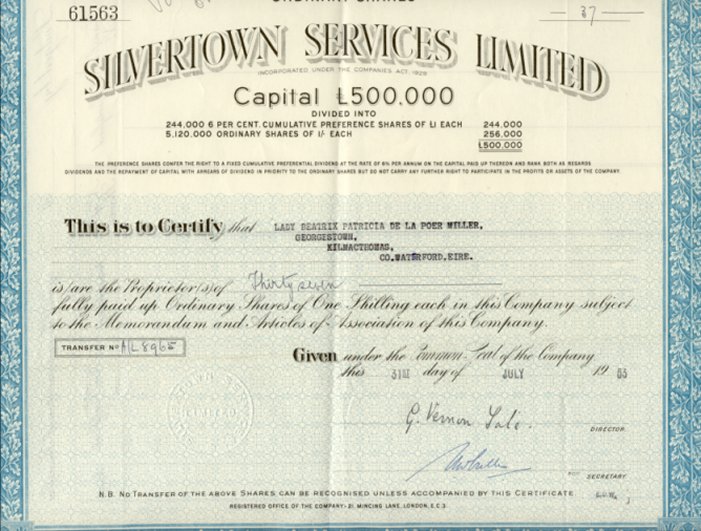 ORDINARY SHARES
61563
37
SILVERTOWN SERVICES LIMITED
INCORPORATED UNDER THE COMPANIES ACT, 1929
Capital £500,000
DIVIDED INTO
244,000 6 PER CENT. CUMULATIVE PREFERENCE SHARES OF £1 EACH 244,000
5,120,000 ORDINARY SHARES OF 1/- EACH 256,000
£500,000
THE PREFERENCE SHARES CONFER THE RIGHT TO A FIXED CUMULATIVE PREFERENTIAL DIVIDEND AT THE RATE OF 6% PER ANNUM ON THE CAPITAL PAID UP THEREON AND RANK BOTH AS REGARDS
DIVIDENDS AND THE REPAYMENT OF CAPITAL WITH ARREARS OF DIVIDEND IN PRIORITY TO THE ORDINARY SHARES BUT DO NOT CARRY ANY FURTHER RIGHT TO PARTICIPATE IN THE PROFITS OR ASSETS OF THE COMPANY.
This is to Certify that LADY BEATRIX PATRICIA DE LA POER MILLER,
GEORGESTOWN,
KILMACTHOMAS,
CO.WATERFORD,EIRE.
is/are the Proprietor(s) of Thirty seven
fully paid up Ordinary Shares of One Shilling each in this Company subject
to the Memorandum and Articles of Association of this Company.
TRANSFER No A/L8965
Given under the Common Seal of the Company
this 31ST day of JULY 19 63
G. Vernon
DIRECTOR.
FOR SECRETARY
N.B. NO TRANSFER OF THE ABOVE SHARES CAN BE RECOGNISED UNLESS ACCOMPANIED BY THIS CERTIFICATE
REGISTERED OFFICE OF THE COMPANY:- 21, MINCING LANE, LONDON, E.C.3.